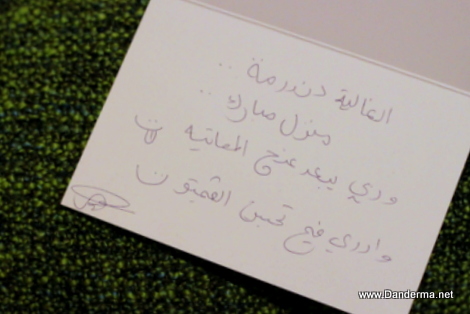 الغالية دندرمة ...
منزل مبارك ..
ودي يبعد عنج المعاتيه
وادري فيج تحبين
www.Danderma.net